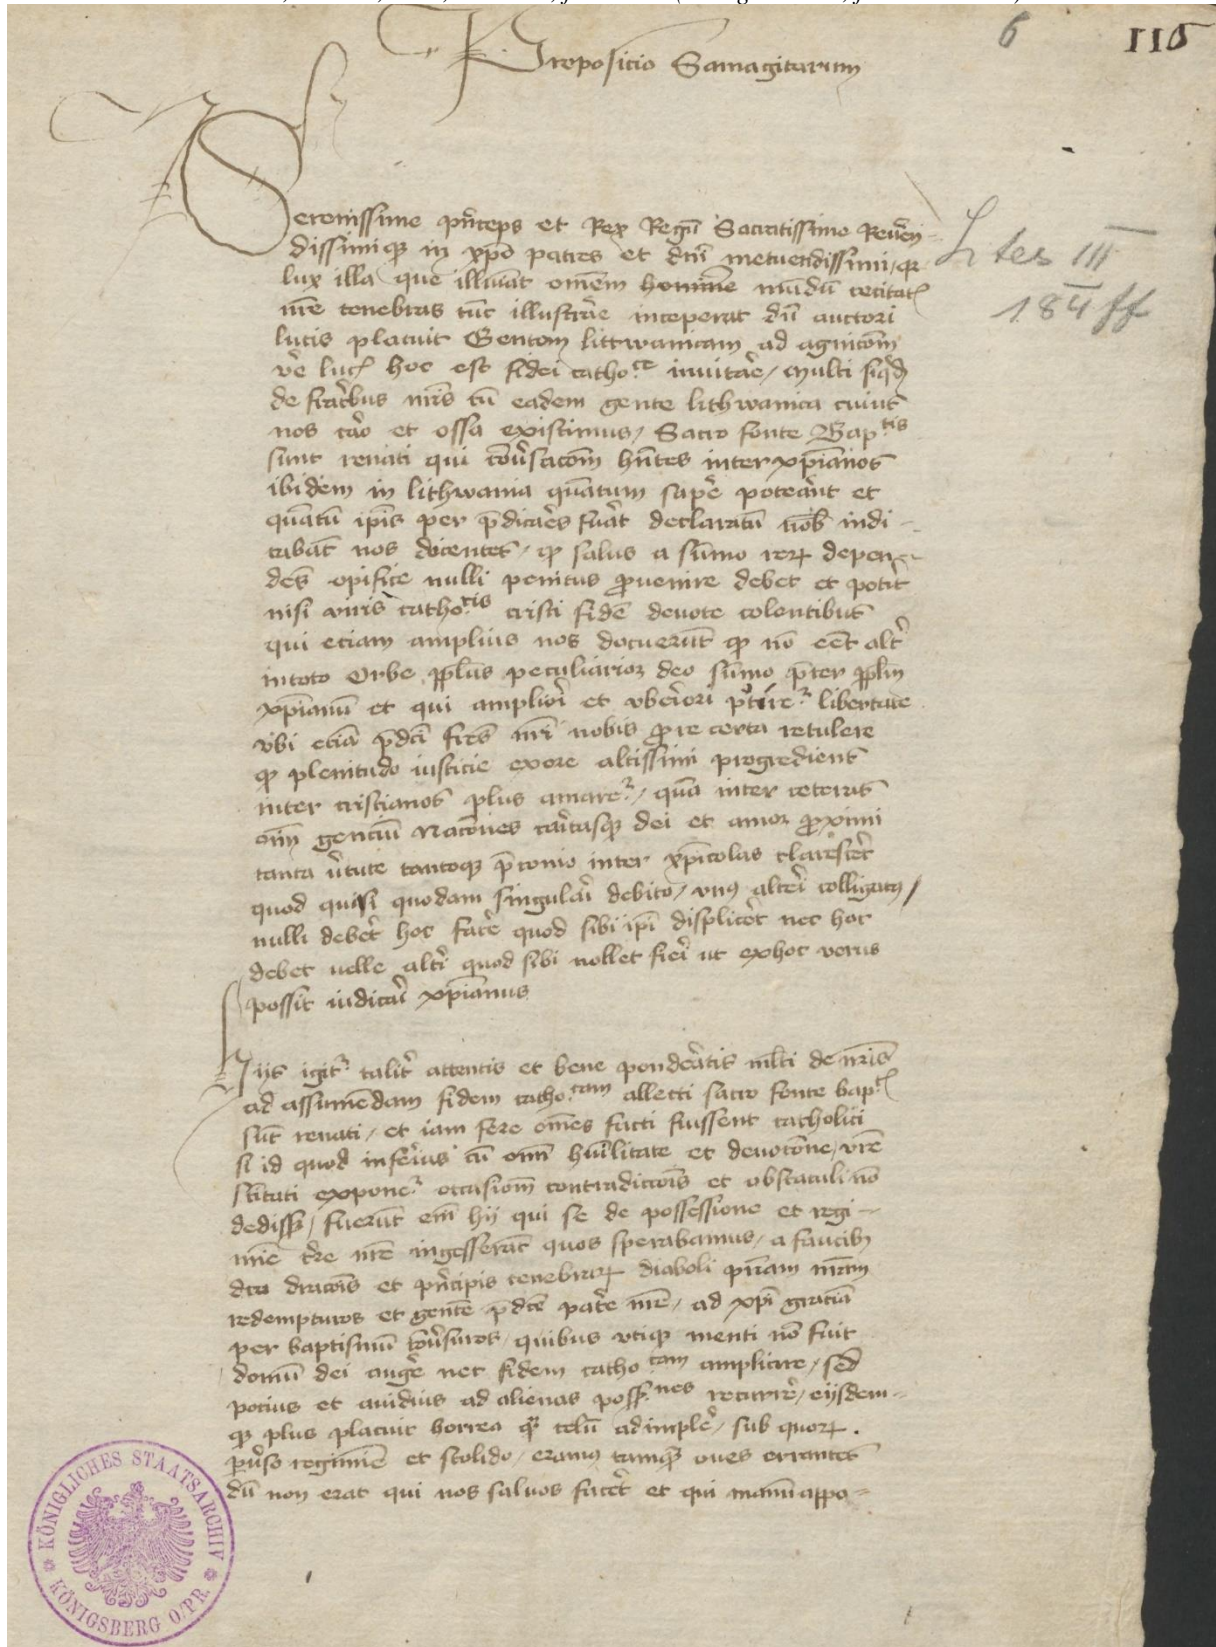 6
115
Propositio Samagitarum
Serenissime pn̄ceps et Rex Regū Sacratissime Reuēn
Lites III
184 ff
dissimiqȝ in xp̄o patres et dn̄i metuendissimi, qȝ
lux illa que illuīat om̄em homine mūdū
nr̄e tenebras tūc illustrar̄e inceperat dū auctori
lucis placuit Gentem littwanicam ad agnicōem
ver̄e luc hoc est fidei cathoce inuitar̄e, Multi siqd
de fratr̄bus nr̄is cū eadem gente lithwanica cuiūt
nos car̄o et ossa existimus, Sacro fonte Baptis
sunt renati qui cōūsacōem hn̄tes inter xp̄ianos
ibidem in lithwania quātum saper̄e poterānt et
quātū ip̄is per p̄dicātes fuāt declaratū nob̄ indi
cabāt nos docentes, qȝ salus a sūmo reȝ depen
des opifice nulli penitus ꝓuenire debet et potit
nisi viris cathocis cristi fidē deuote colentibus
qui eciam amplius nos docuerūt qȝ nō eēt alt̄
intoto Orbe ppl̄us peculiarior deo sūmo p̄ter ppl̄m
xp̄ianū et qui ampliori et vberiori libertate
vbi eciā p̄dci fr̄es nr̄i nobis ꝓ re certa retulere
qȝ plenitudo iusticie exore altissimi progredient
inter cristianos plus amare, quā inter ceteras
om̄i genciū Nacōnes caritasqȝ dei et amor ꝓximi
tanta v̄tute tantoqȝ p̄conio inter xp̄icolas claresc̄et
quod quasi quodam singulari debito, vnꝰ alteri colligatꝰ,
nulli deber̄t hoc facr̄e quod sibi ip̄i displicer̄t nec hoc
debet velle alt̄i quod sibi nollet fieri ut exhoc verus
possit iudicari xp̄ianus
Hijs igit̄ talit̄ attentis et bene ponder̄atis ml̄ti de nr̄is
ad assumēdam fidem cathocam allecti sacro fonte bapt
sūt renati, et iam fere om̄es facti fuissent catholici
si id quod infer̄ius cū om̄i hūilitate et deuocōne, vr̄e
sc̄itati exponet̄ occasiom̄ contradiccōis et obstaculi nō
dediss, fuerūt em̄ hij qui se de possessione et regi
mie tr̄e nr̄e ingesserāt quos sperabamus, a faucibꝰ
dcī dracōis et pn̄cipis tenebraȝ diaboli pr̄iam nr̄am
redempturos et gentē p̄dcē patr̄e nr̄e, ad xp̄i graciā
per baptismū cōūsuros, quibus vtiqȝ menti nō fuit
domū dei auger̄e nec fidem cathocam ampliare, sed
pocius et auidius ad alienas possnes recurrer̄e, eijsdem
qȝ plus placuit horrea qȝ celū adimpler̄e, sub quoȝ.
puso regimie et stolido, eramꝰ tamqȝ oues errantes
dū non erat qui nos saluos facer̄t et qui manū appo
KÖNIGLICHES STAATSARCHIV
KÖNIGSBERG O/PR.